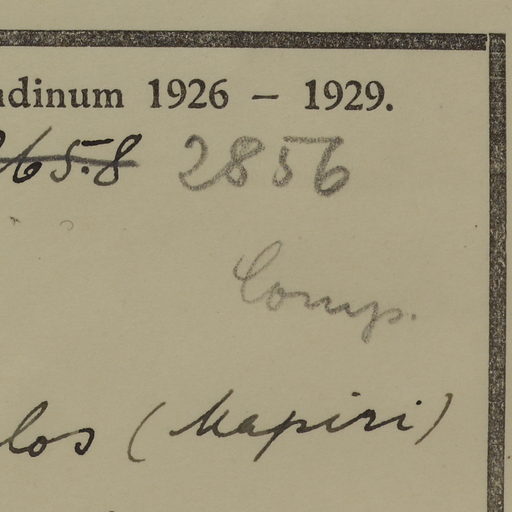 ndinum 1926 – 1929.
2658 2856
Comp.
los (Mapiri)